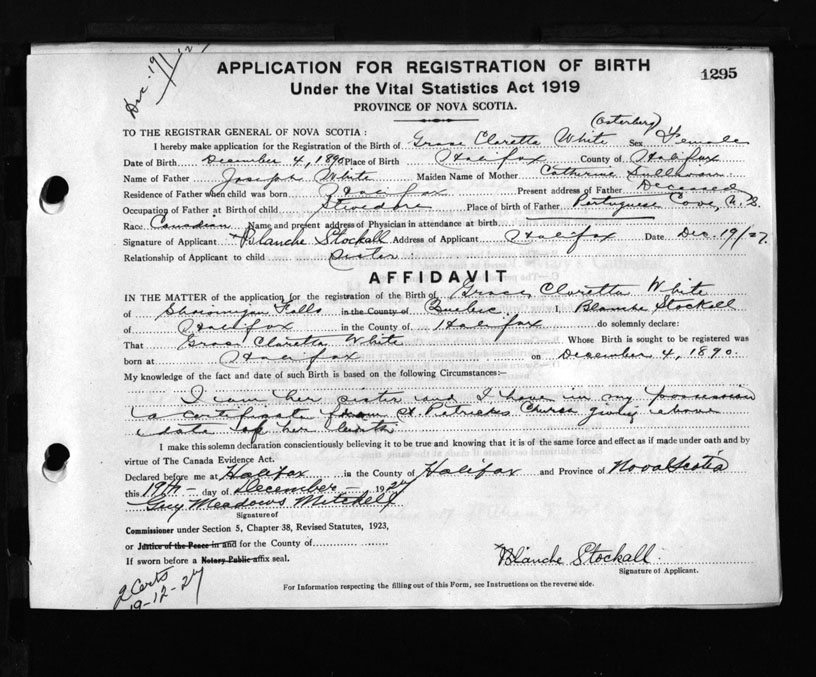 Dec. 19/
APPLICATION FOR REGISTRATION OF BIRTH
1295
Under the Vital Statistics Act 1919
PROVINCE OF NOVA SCOTIA.
(Osterberg)
TO THE REGISTRAR GENERAL OF NOVA SCOTIA:
I hereby make application for the Registration of the Birth of Grace Claretta White Sex Female
Date of Birth December 4, 1890 Place of Birth Halifax County of Halifax
Name of Father Joseph White Maiden Name of Mother Catherine
Residence of Father when child was born Halifax Present address of Father Deceased
Occupation of Father at Birth of child Stevedore Place of birth of Father Portuguese Cove,
Race Canadian Name and present address of Physician in attendance at birth
Signature of Applicant Blanche Stockall Address of Applicant Halifax Date Dec. 19/27.
Relationship of Applicant to child sister
AFFIDAVIT
IN THE MATTER of the application for the registration of the Birth of Grace Claretta White
of Shawinigan Falls in the County of Quebec. I, Blanche Stockall
of Halifax in the County of Halifax do solemnly declare:
That Grace Claretta White Whose Birth is sought to be registered was
born at Halifax on December 4, 1890.
My knowledge of the fact and date of such Birth is based on the following Circumstances:—
I am her sister and I have in my possession
a certificate from St. Patricks Church giving above
date of her birth
I make this solemn declaration conscientiously believing it to be true and knowing that it is of the same force and effect as if made under oath and by
virtue of The Canada Evidence Act.
Declared before me at Halifax in the County of Halifax and Province of Nova Scotia
this 19th day of December 1927
Guy Meadows Mitchell
Signature of
Commissioner under Section 5, Chapter 38, Revised Statutes, 1923,
or Justice of the Peace in and for the County of
If sworn before a Notary Public affix seal.
Blanche Stockall
Signature of Applicant.
2 Certs
19-12-27
For Information respecting the filling out of this Form, see Instructions on the reverse side.